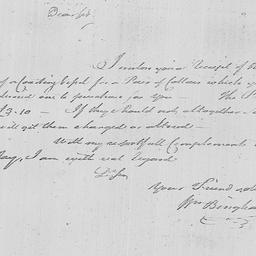 Dear Sir
I inclose you a Receipt of
for a Pair of Collars which
desired me to purchase for you The
13.10 — If they should not, altogether
will get them changed or altered —
With my respectfull Compliments
I am with real regard
D Sir
Your Friend
Wm Bingham